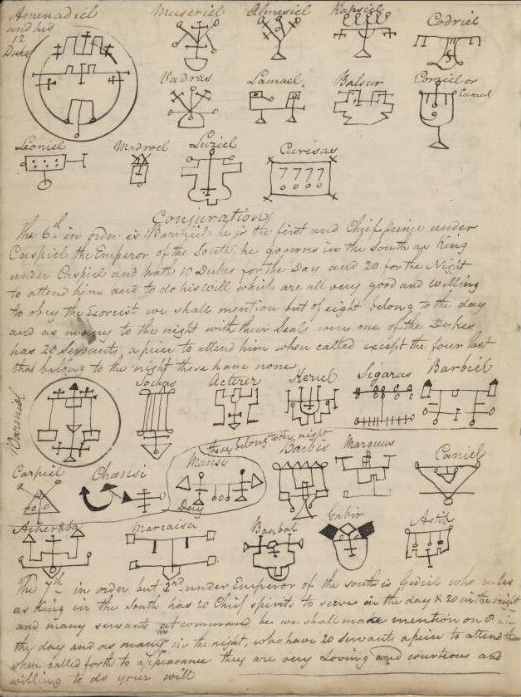 Armenadiel Museriel Almesiel Rapsiel Codriel
and his
12
Dukes
Oadras Lamael Balsur Coraiel or
Leoniel Luziel Curisas
7777
Conjuration
The 6th in order is Barmiel he is the first and Chief prince under
Caspiel the Emperor of the South he governs in the South as King
under Caspiel and hath 10 Dukes for the Day and 20 for the Night
to attend him and to do his will which are all very good and willing
to obey the Exorcist we shall mention but of eight belong to the day
and as many to the night with their Seals every one of the Dukes
has 20 Servants, apiece to attend him when called except the four last
that belong to the night these have none
Barmiel Sochas Acterer Kerul Sigaras Barbiel
these belong to the night
Carpiel Chansi Mansi Barbis Marguns Caniel
Day
Acheraba Marcaisa Baabal Gabir Astib
The 7th in order but 2nd under Emperor of the south is Gidiel who rules
as king in the South has 20 Chief spirits to serve in the day & 20 in the night
and many servants at command he we shall make mention on 8
the day and as many in the night, who have 20 servants apiece to attend them
when called forth to appearance they are very Loving and courteous and
willing to do your will